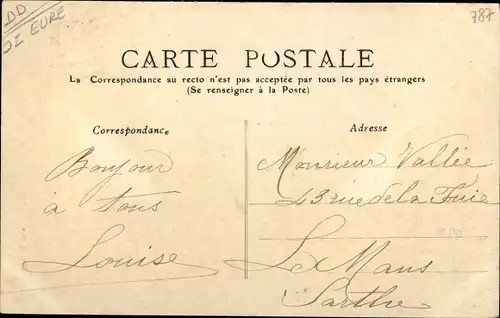 DD
DE EURE
787
CARTE POSTALE
La Correspondance au recto n'est pas acceptée par tous les pays étrangers
(Se renseigner à la Poste)
Correspondance
Bonjour
à tous
Louise
Adresse
Monsieur Vallée
43 rue de la Fuie
Le Mans
Sarthe